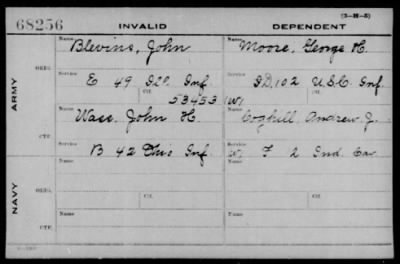 (3-H-5)
68256 INVALID DEPENDENT
ARMY
NAVY
ORIG.
CTF.
ORIG.
CTF.
Name Blevins, John Name Moore, George H.
Service E 49 Ill. Inf Service D, 102 U.S.C. Inf.
Ctf. Ctf. 53453 (W)
Name Wase, John H. Name Coghill, Andrew J.
Service B 42 Ohio Inf. Service W. F 2 Ind. Cav
Name Name
Ctf. Ctf.
Name Name